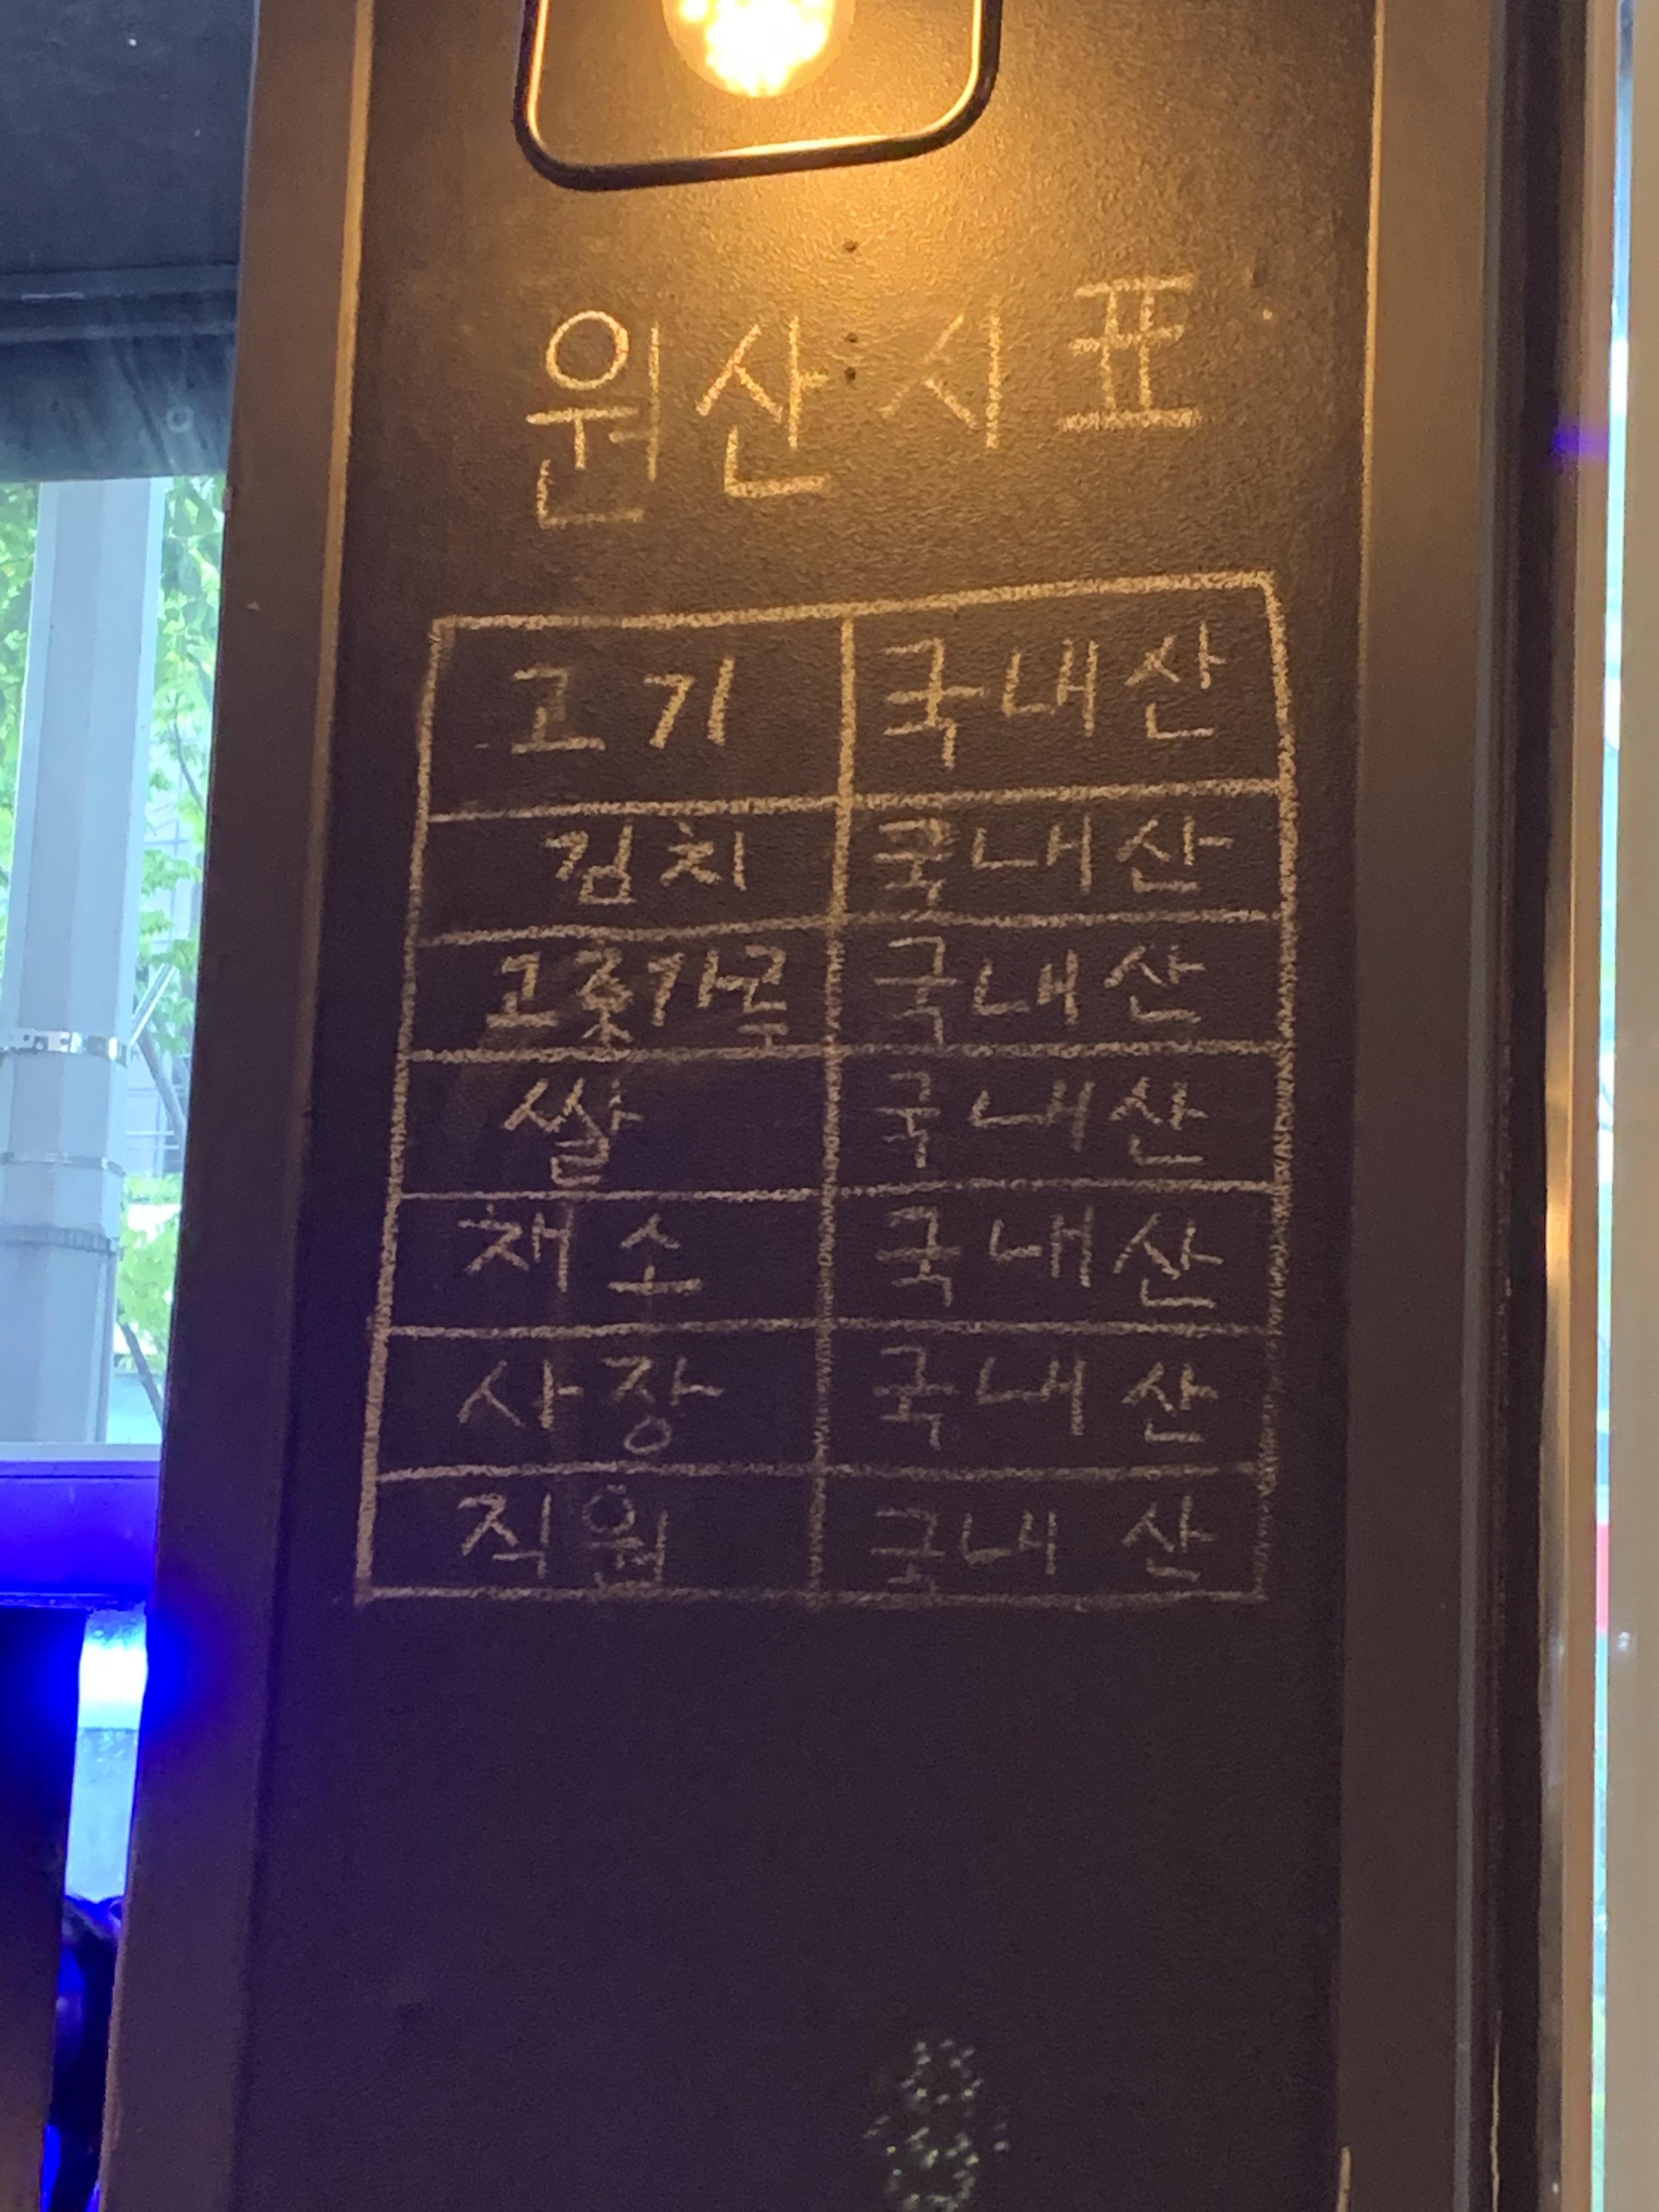 원산지표
고기 국내산
김치 국내산
고춧가루 국내산
쌀 국내산
채소 국내산
사장 국내산
직원 국내산